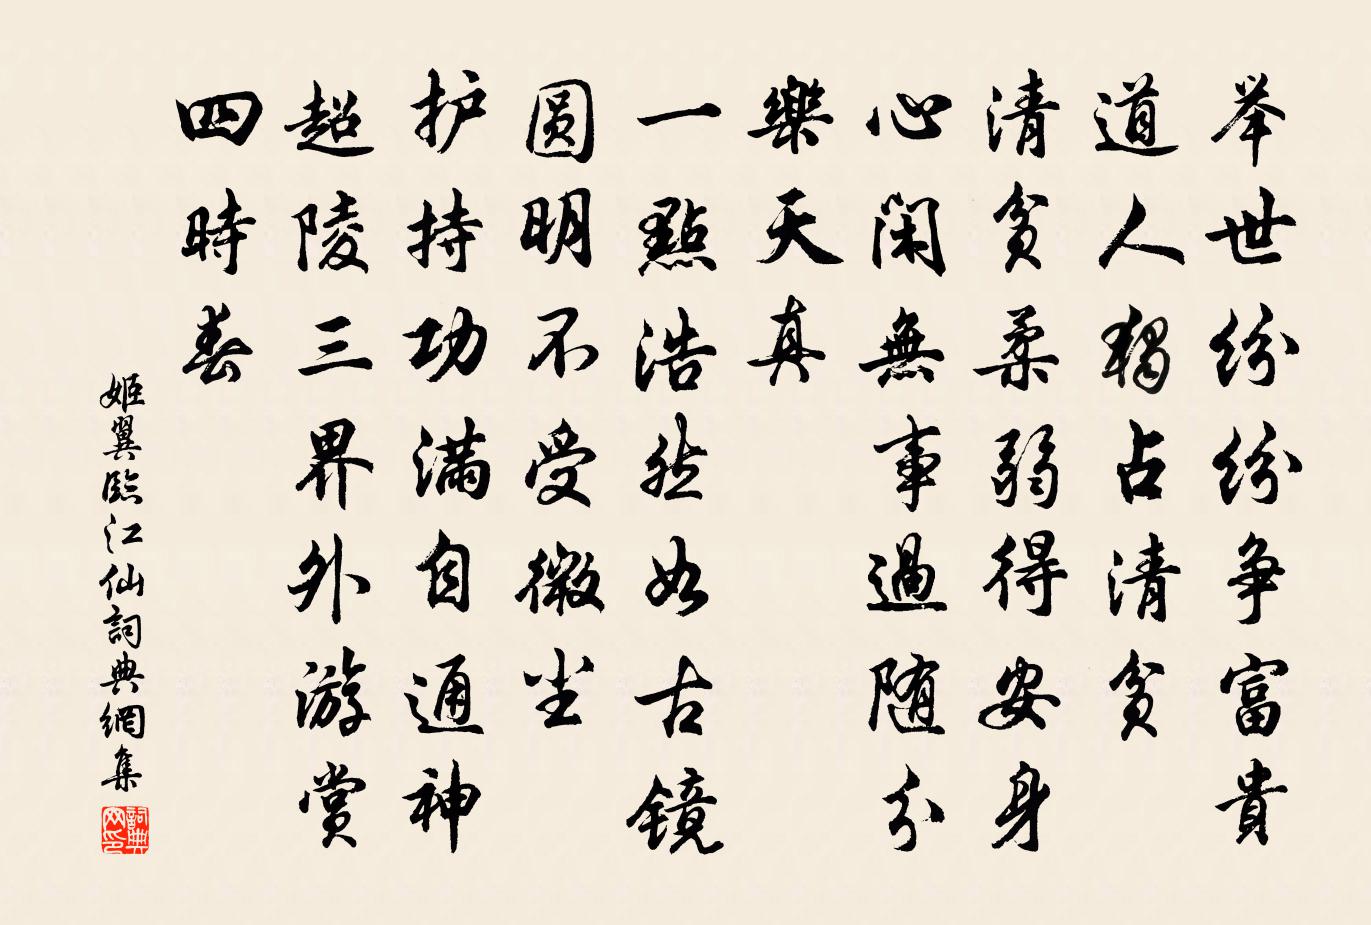 举世纷纷争富貴
道人獨占清贫
清贫柔弱得安身
心闲無事過随分
樂天真
一點浩然如古镜
圆明不受微尘
护持功满自通神
超陵三界外游赏
四時春
姬翼臨江仙詞典網集
詞典网印